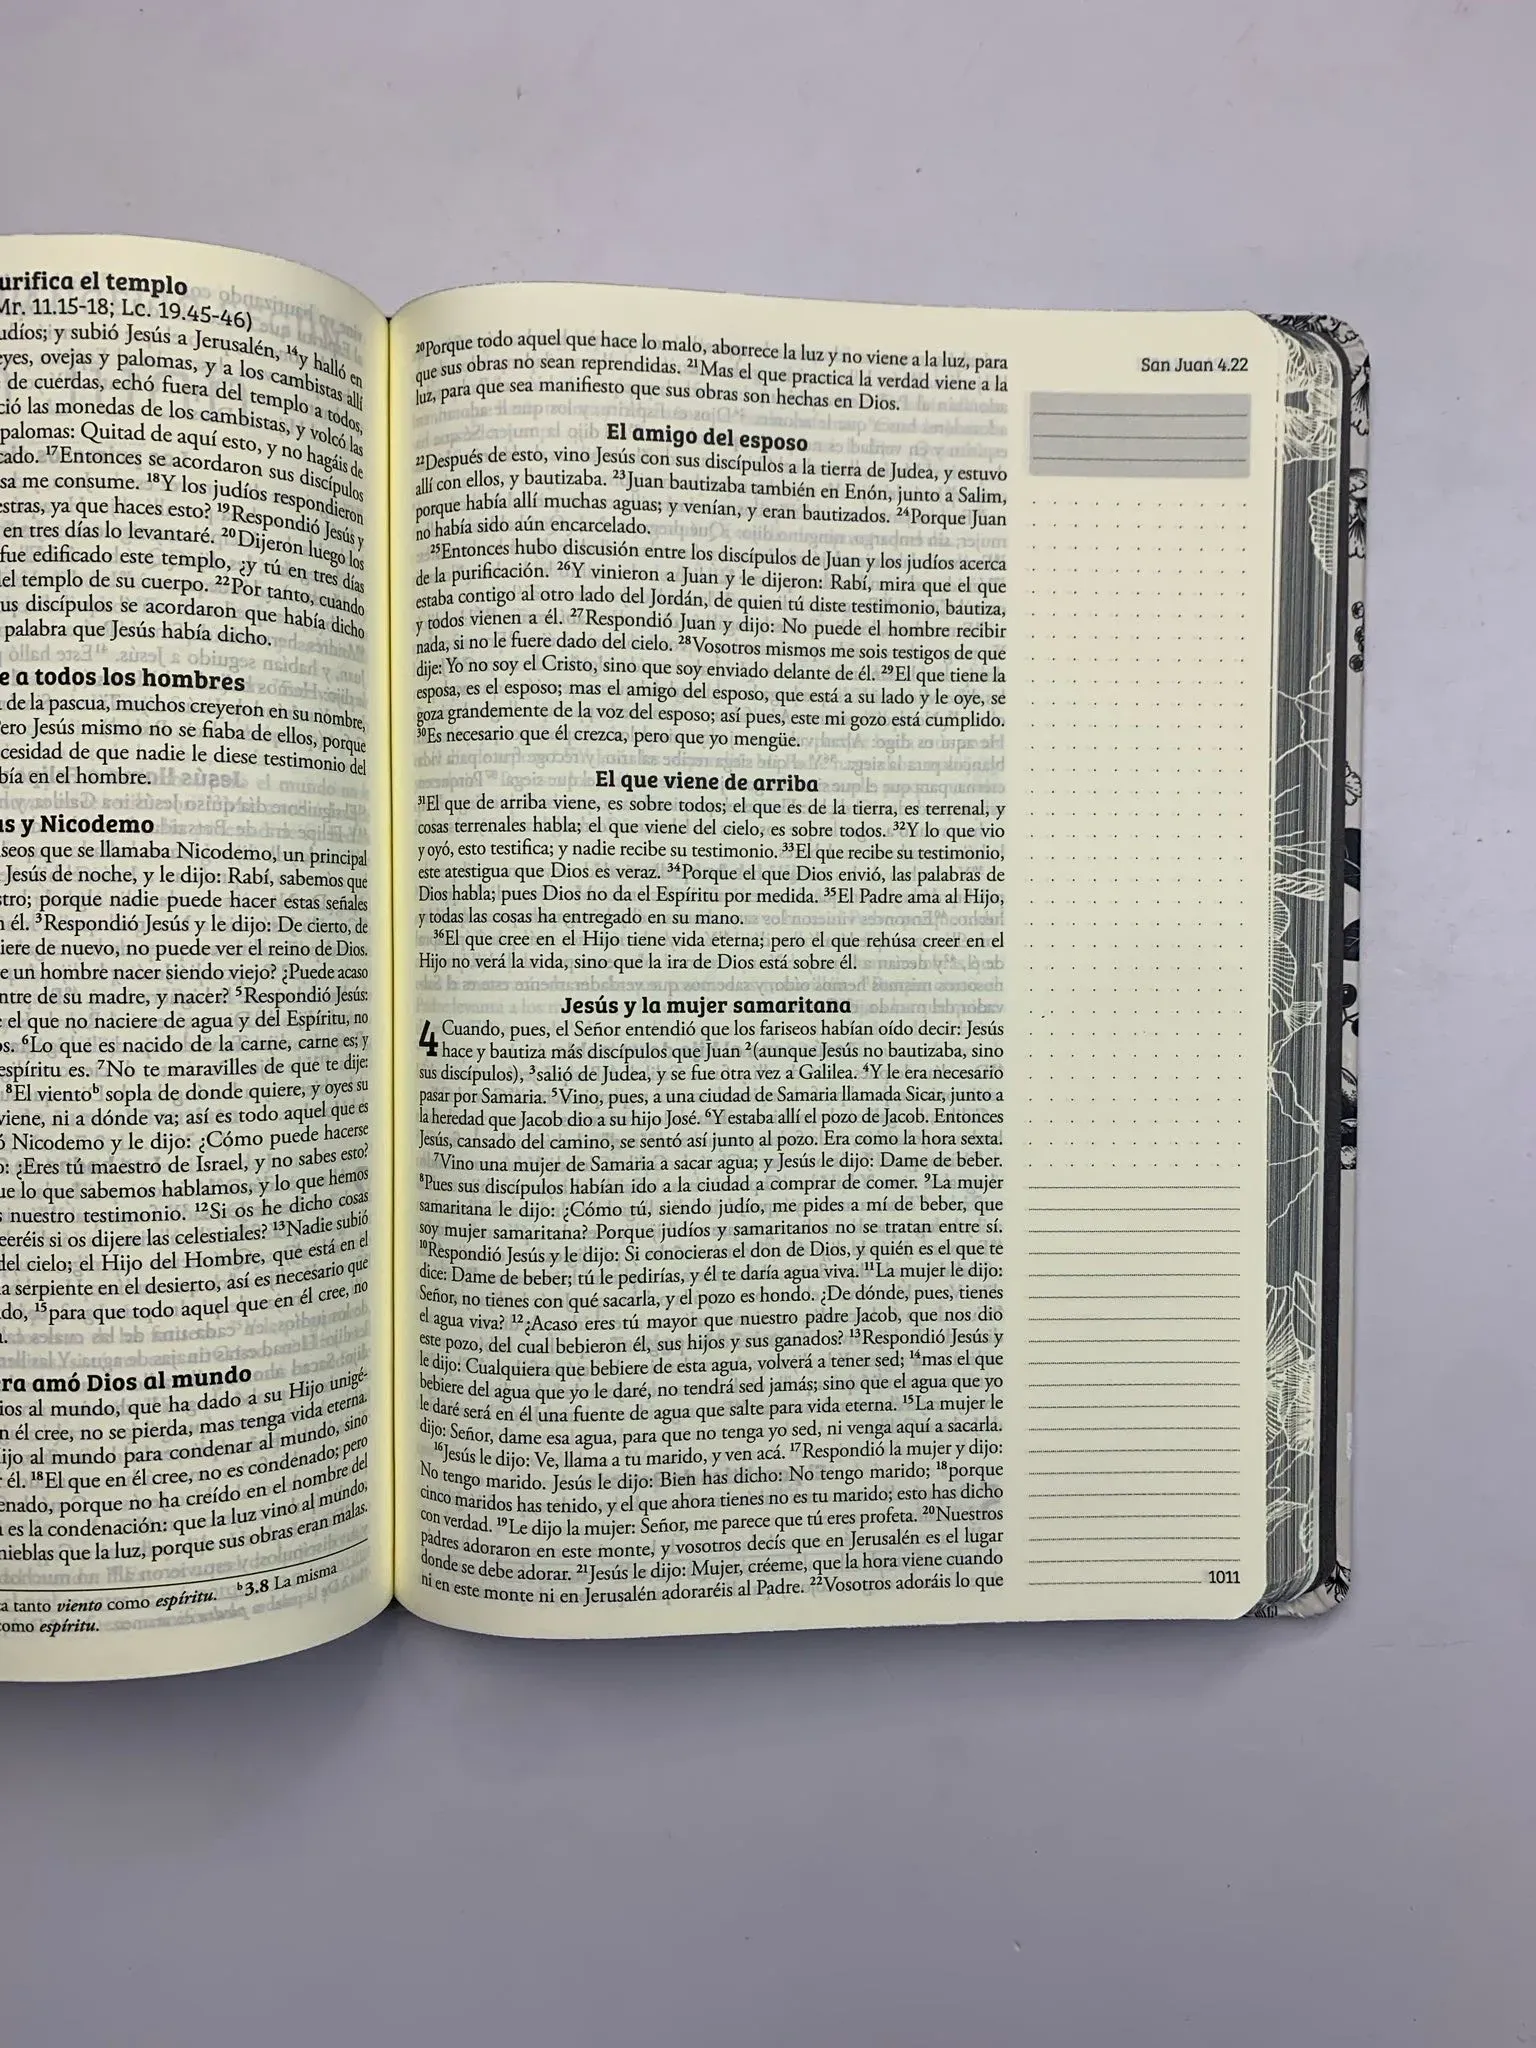 urifica el templo
Mr. 11.15-18; Lc. 19.45-46)
udíos; y subió Jesús a Jerusalén, ¹⁴y halló en
eyes, ovejas y palomas, y a los cambistas allí
de cuerdas, echó fuera del templo a todos,
ció las monedas de los cambistas, y volcó las
palomas: Quitad de aquí esto, y no hagáis de
cado. ¹⁷Entonces se acordaron sus discípulos
sa me consume. ¹⁸Y los judíos respondieron
estras, ya que haces esto? ¹⁹Respondió Jesús y
en tres días lo levantaré. ²⁰Dijeron luego los
fue edificado este templo, ¿y tú en tres días
del templo de su cuerpo. ²²Por tanto, cuando
us discípulos se acordaron que había dicho
palabra que Jesús había dicho.
e a todos los hombres
de la pascua, muchos creyeron en su nombre,
Pero Jesús mismo no se fiaba de ellos, porque
cesidad de que nadie le diese testimonio del
bía en el hombre.
us y Nicodemo
iseos que se llamaba Nicodemo, un principal
Jesús de noche, y le dijo: Rabí, sabemos que
stro; porque nadie puede hacer estas señales
n él. ³Respondió Jesús y le dijo: De cierto, de
iere de nuevo, no puede ver el reino de Dios.
e un hombre nacer siendo viejo? ¿Puede acaso
entre de su madre, y nacer? ⁵Respondió Jesús:
e el que no naciere de agua y del Espíritu, no
os. ⁶Lo que es nacido de la carne, carne es; y
espíritu es. ⁷No te maravilles de que te dije:
⁸El vientoᵇ sopla de donde quiere, y oyes su
viene, ni a dónde va; así es todo aquel que es
ó Nicodemo y le dijo: ¿Cómo puede hacerse
o: ¿Eres tú maestro de Israel, y no sabes esto?
ue lo que sabemos hablamos, y lo que hemos
s nuestro testimonio. ¹²Si os he dicho cosas
eeréis si os dijere las celestiales? ¹³Nadie subió
del cielo; el Hijo del Hombre, que está en el
a serpiente en el desierto, así es necesario que
do, ¹⁵para que todo aquel que en él cree, no
a.
ra amó Dios al mundo
ios al mundo, que ha dado a su Hijo unigé-
n él cree, no se pierda, mas tenga vida eterna.
ijo al mundo para condenar al mundo, sino
r él. ¹⁸El que en él cree, no es condenado; pero
enado, porque no ha creído en el nombre del
a es la condenación: que la luz vino al mundo,
nieblas que la luz, porque sus obras eran malas.
a tanto viento como espíritu. ᵇ3.8 La misma
como espíritu.
²⁰Porque todo aquel que hace lo malo, aborrece la luz y no viene a la luz, para
que sus obras no sean reprendidas. ²¹Mas el que practica la verdad viene a la
luz, para que sea manifiesto que sus obras son hechas en Dios.
El amigo del esposo
²²Después de esto, vino Jesús con sus discípulos a la tierra de Judea, y estuvo
allí con ellos, y bautizaba. ²³Juan bautizaba también en Enón, junto a Salim,
porque había allí muchas aguas; y venían, y eran bautizados. ²⁴Porque Juan
no había sido aún encarcelado.
²⁵Entonces hubo discusión entre los discípulos de Juan y los judíos acerca
de la purificación. ²⁶Y vinieron a Juan y le dijeron: Rabí, mira que el que
estaba contigo al otro lado del Jordán, de quien tú diste testimonio, bautiza,
y todos vienen a él. ²⁷Respondió Juan y dijo: No puede el hombre recibir
nada, si no le fuere dado del cielo. ²⁸Vosotros mismos me sois testigos de que
dije: Yo no soy el Cristo, sino que soy enviado delante de él. ²⁹El que tiene la
esposa, es el esposo; mas el amigo del esposo, que está a su lado y le oye, se
goza grandemente de la voz del esposo; así pues, este mi gozo está cumplido.
³⁰Es necesario que él crezca, pero que yo mengüe.
El que viene de arriba
³¹El que de arriba viene, es sobre todos; el que es de la tierra, es terrenal, y
cosas terrenales habla; el que viene del cielo, es sobre todos. ³²Y lo que vio
y oyó, esto testifica; y nadie recibe su testimonio. ³³El que recibe su testimonio,
este atestigua que Dios es veraz. ³⁴Porque el que Dios envió, las palabras de
Dios habla; pues Dios no da el Espíritu por medida. ³⁵El Padre ama al Hijo,
y todas las cosas ha entregado en su mano.
³⁶El que cree en el Hijo tiene vida eterna; pero el que rehúsa creer en el
Hijo no verá la vida, sino que la ira de Dios está sobre él.
Jesús y la mujer samaritana
4 Cuando, pues, el Señor entendió que los fariseos habían oído decir: Jesús
hace y bautiza más discípulos que Juan ²(aunque Jesús no bautizaba, sino
sus discípulos), ³salió de Judea, y se fue otra vez a Galilea. ⁴Y le era necesario
pasar por Samaria. ⁵Vino, pues, a una ciudad de Samaria llamada Sicar, junto a
la heredad que Jacob dio a su hijo José. ⁶Y estaba allí el pozo de Jacob. Entonces
Jesús, cansado del camino, se sentó así junto al pozo. Era como la hora sexta.
⁷Vino una mujer de Samaria a sacar agua; y Jesús le dijo: Dame de beber.
⁸Pues sus discípulos habían ido a la ciudad a comprar de comer. ⁹La mujer
samaritana le dijo: ¿Cómo tú, siendo judío, me pides a mí de beber, que
soy mujer samaritana? Porque judíos y samaritanos no se tratan entre sí.
¹⁰Respondió Jesús y le dijo: Si conocieras el don de Dios, y quién es el que te
dice: Dame de beber; tú le pedirías, y él te daría agua viva. ¹¹La mujer le dijo:
Señor, no tienes con qué sacarla, y el pozo es hondo. ¿De dónde, pues, tienes
el agua viva? ¹²¿Acaso eres tú mayor que nuestro padre Jacob, que nos dio
este pozo, del cual bebieron él, sus hijos y sus ganados? ¹³Respondió Jesús y
le dijo: Cualquiera que bebiere de esta agua, volverá a tener sed; ¹⁴mas el que
bebiere del agua que yo le daré, no tendrá sed jamás; sino que el agua que yo
le daré será en él una fuente de agua que salte para vida eterna. ¹⁵La mujer le
dijo: Señor, dame esa agua, para que no tenga yo sed, ni venga aquí a sacarla.
¹⁶Jesús le dijo: Ve, llama a tu marido, y ven acá. ¹⁷Respondió la mujer y dijo:
No tengo marido. Jesús le dijo: Bien has dicho: No tengo marido; ¹⁸porque
cinco maridos has tenido, y el que ahora tienes no es tu marido; esto has dicho
con verdad. ¹⁹Le dijo la mujer: Señor, me parece que tú eres profeta. ²⁰Nuestros
padres adoraron en este monte, y vosotros decís que en Jerusalén es el lugar
donde se debe adorar. ²¹Jesús le dijo: Mujer, créeme, que la hora viene cuando
ni en este monte ni en Jerusalén adoraréis al Padre. ²²Vosotros adoráis lo que
San Juan 4.22
1011